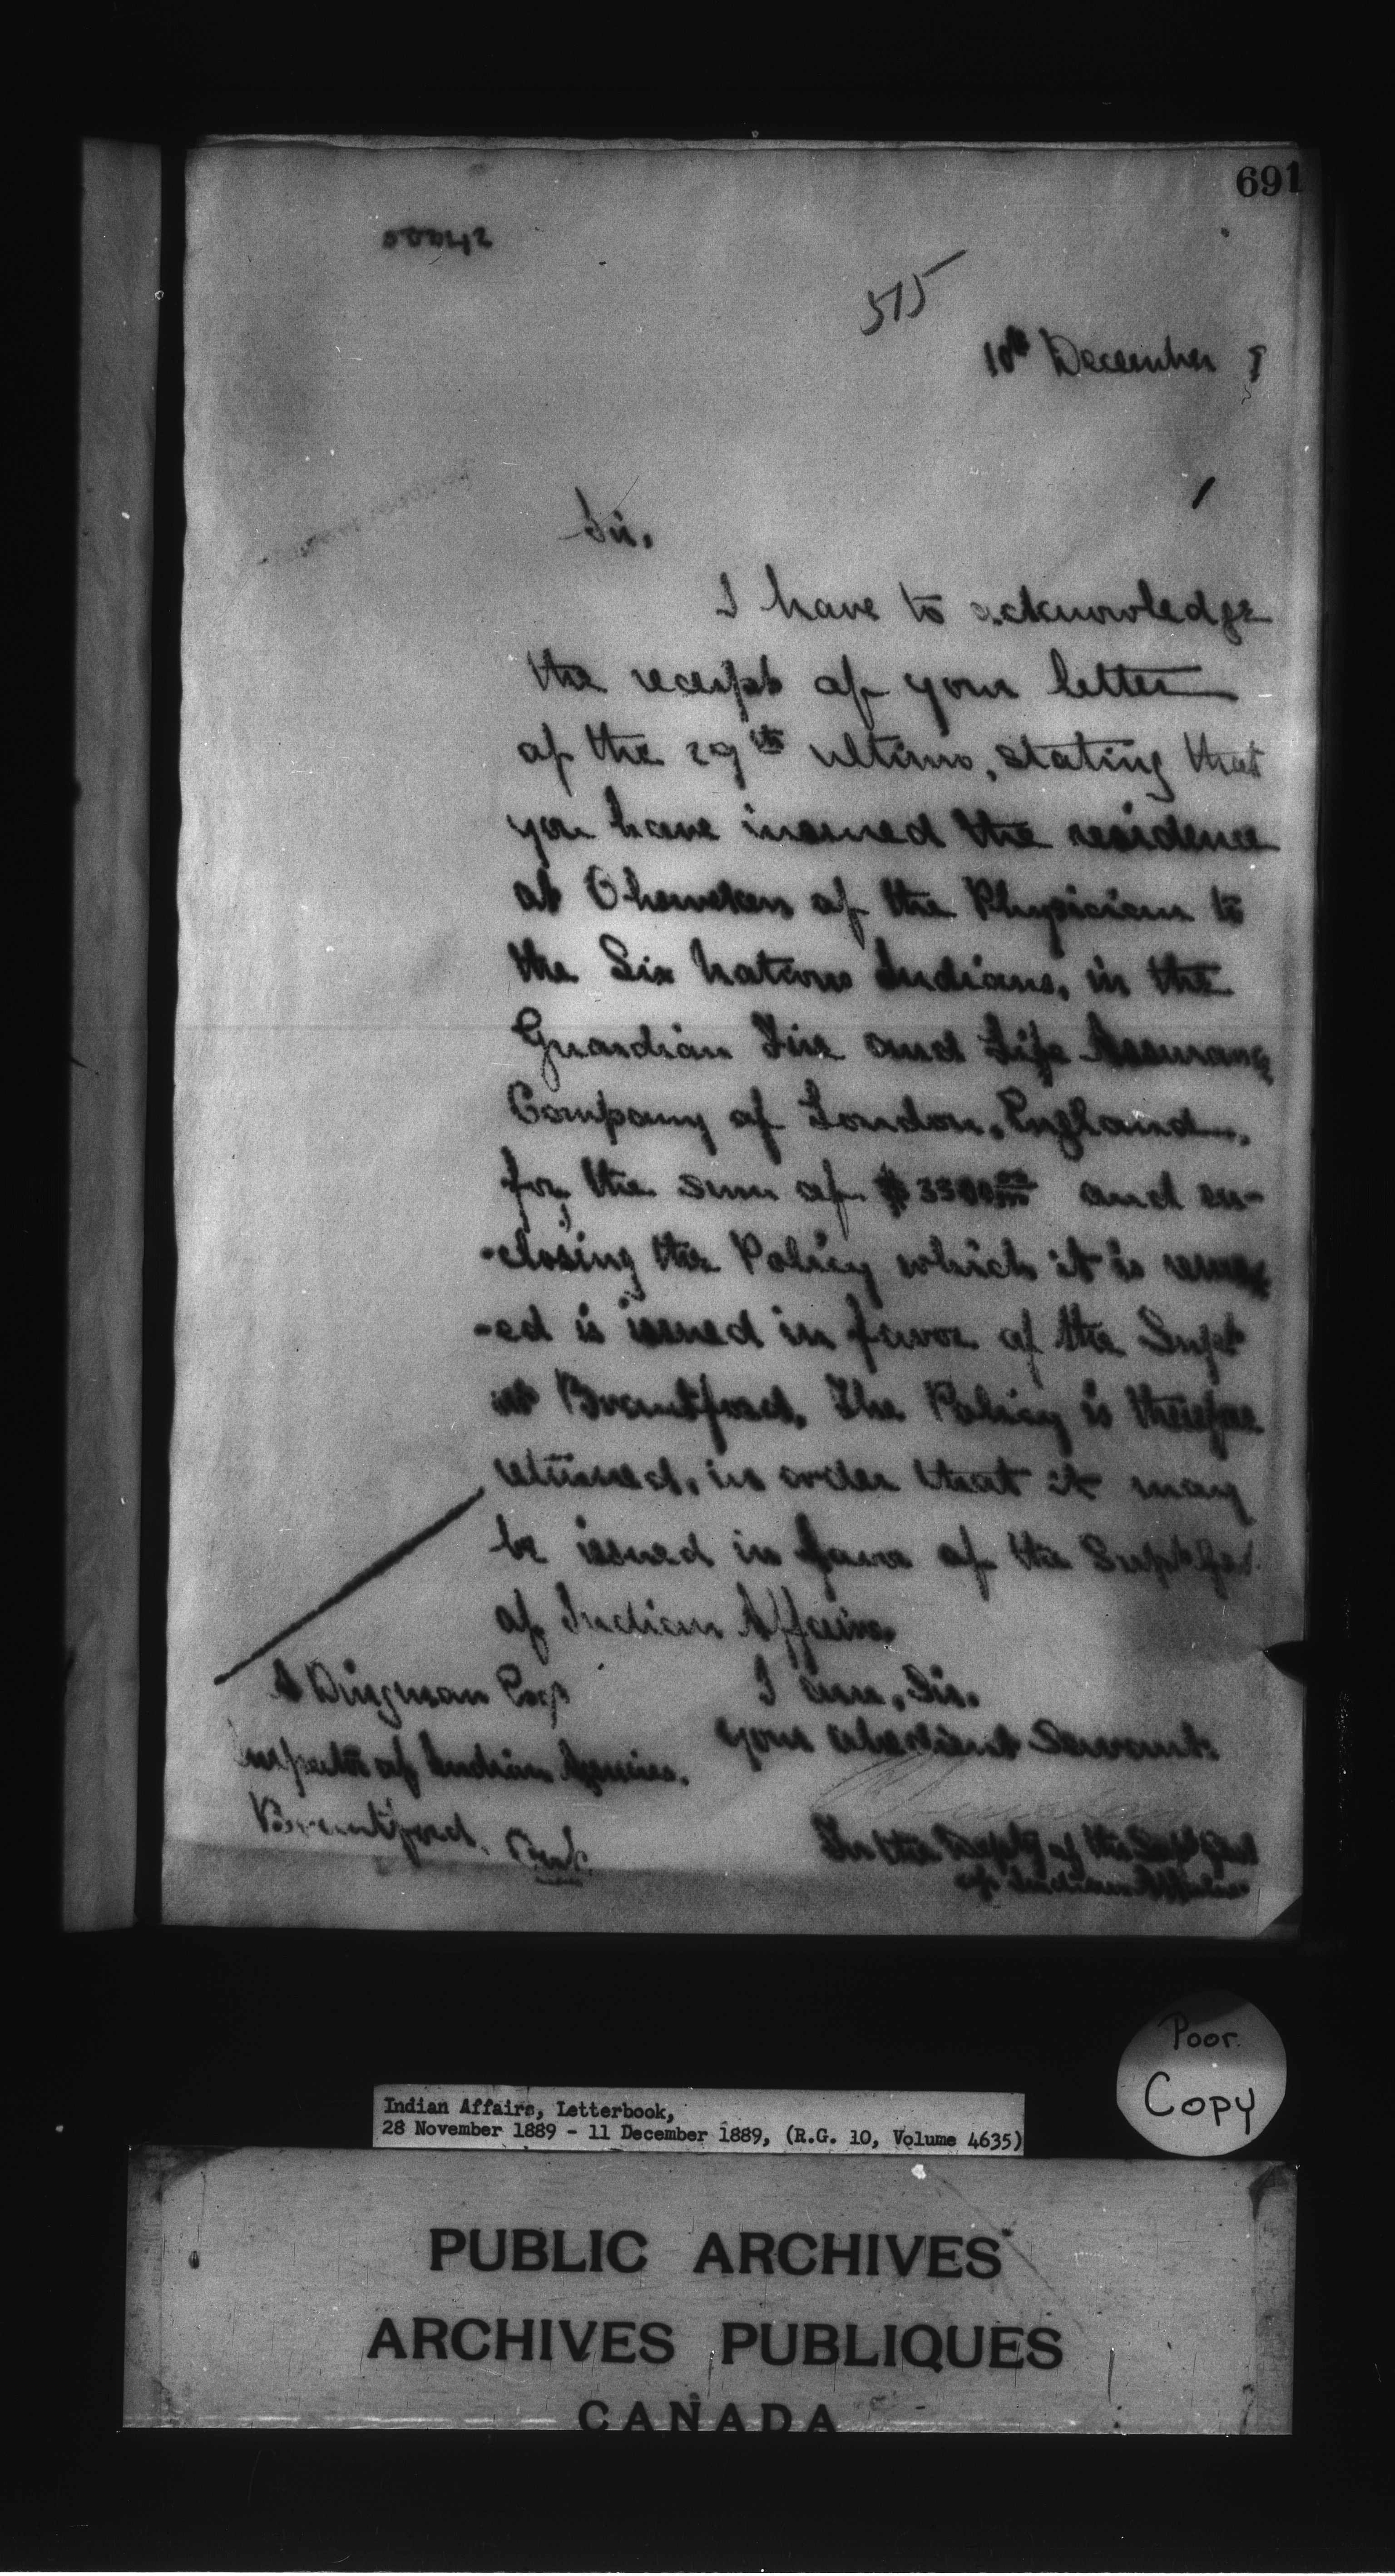 691
515
10th December 9
Sir,
I have to acknowledge
the receipt of your letter
of the 29th ultimo, stating that
you have insured the residence
at Ohsweken of the Physician to
the Six Nations Indians, in the
Guardian Fire and Life Assurance
Company of London, England,
for the sum of $3500 00/100 and en-
-closing the Policy which it is
-ed is issued in favor of the Supt
at Brantford. The Policy is therefore
returned, in order that it may
be issued in favor of the Supt Genl.
of Indian Affairs.
I am, Sir,
Your obedient Servant.
A Dingman Esqr
Inspector of Indian Agencies.
Brantford, Ont.
For the Deputy of the Supt Genl
of Indian Affairs
Poor
Copy
Indian Affairs, Letterbook,
28 November 1889 - 11 December 1889, (R.G. 10, Volume 4635)
PUBLIC ARCHIVES
ARCHIVES PUBLIQUES
CANADA